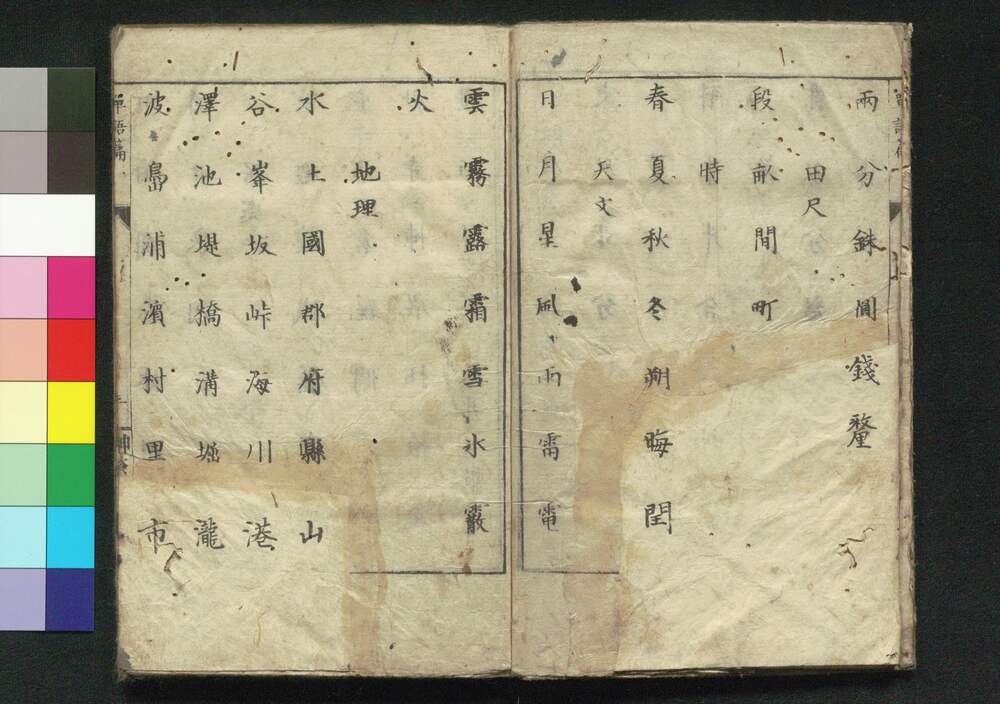 兩分銖圓錢釐
田尺
段畝間町
時
春夏秋冬朔晦閏
天文
日月星風雨雷電
雲霧露霜雪氷霰
火
地理
水土國郡府縣山
谷峯坂峠海川港
澤池堤橋溝堀瀧
波島浦濱村里市
單語篇